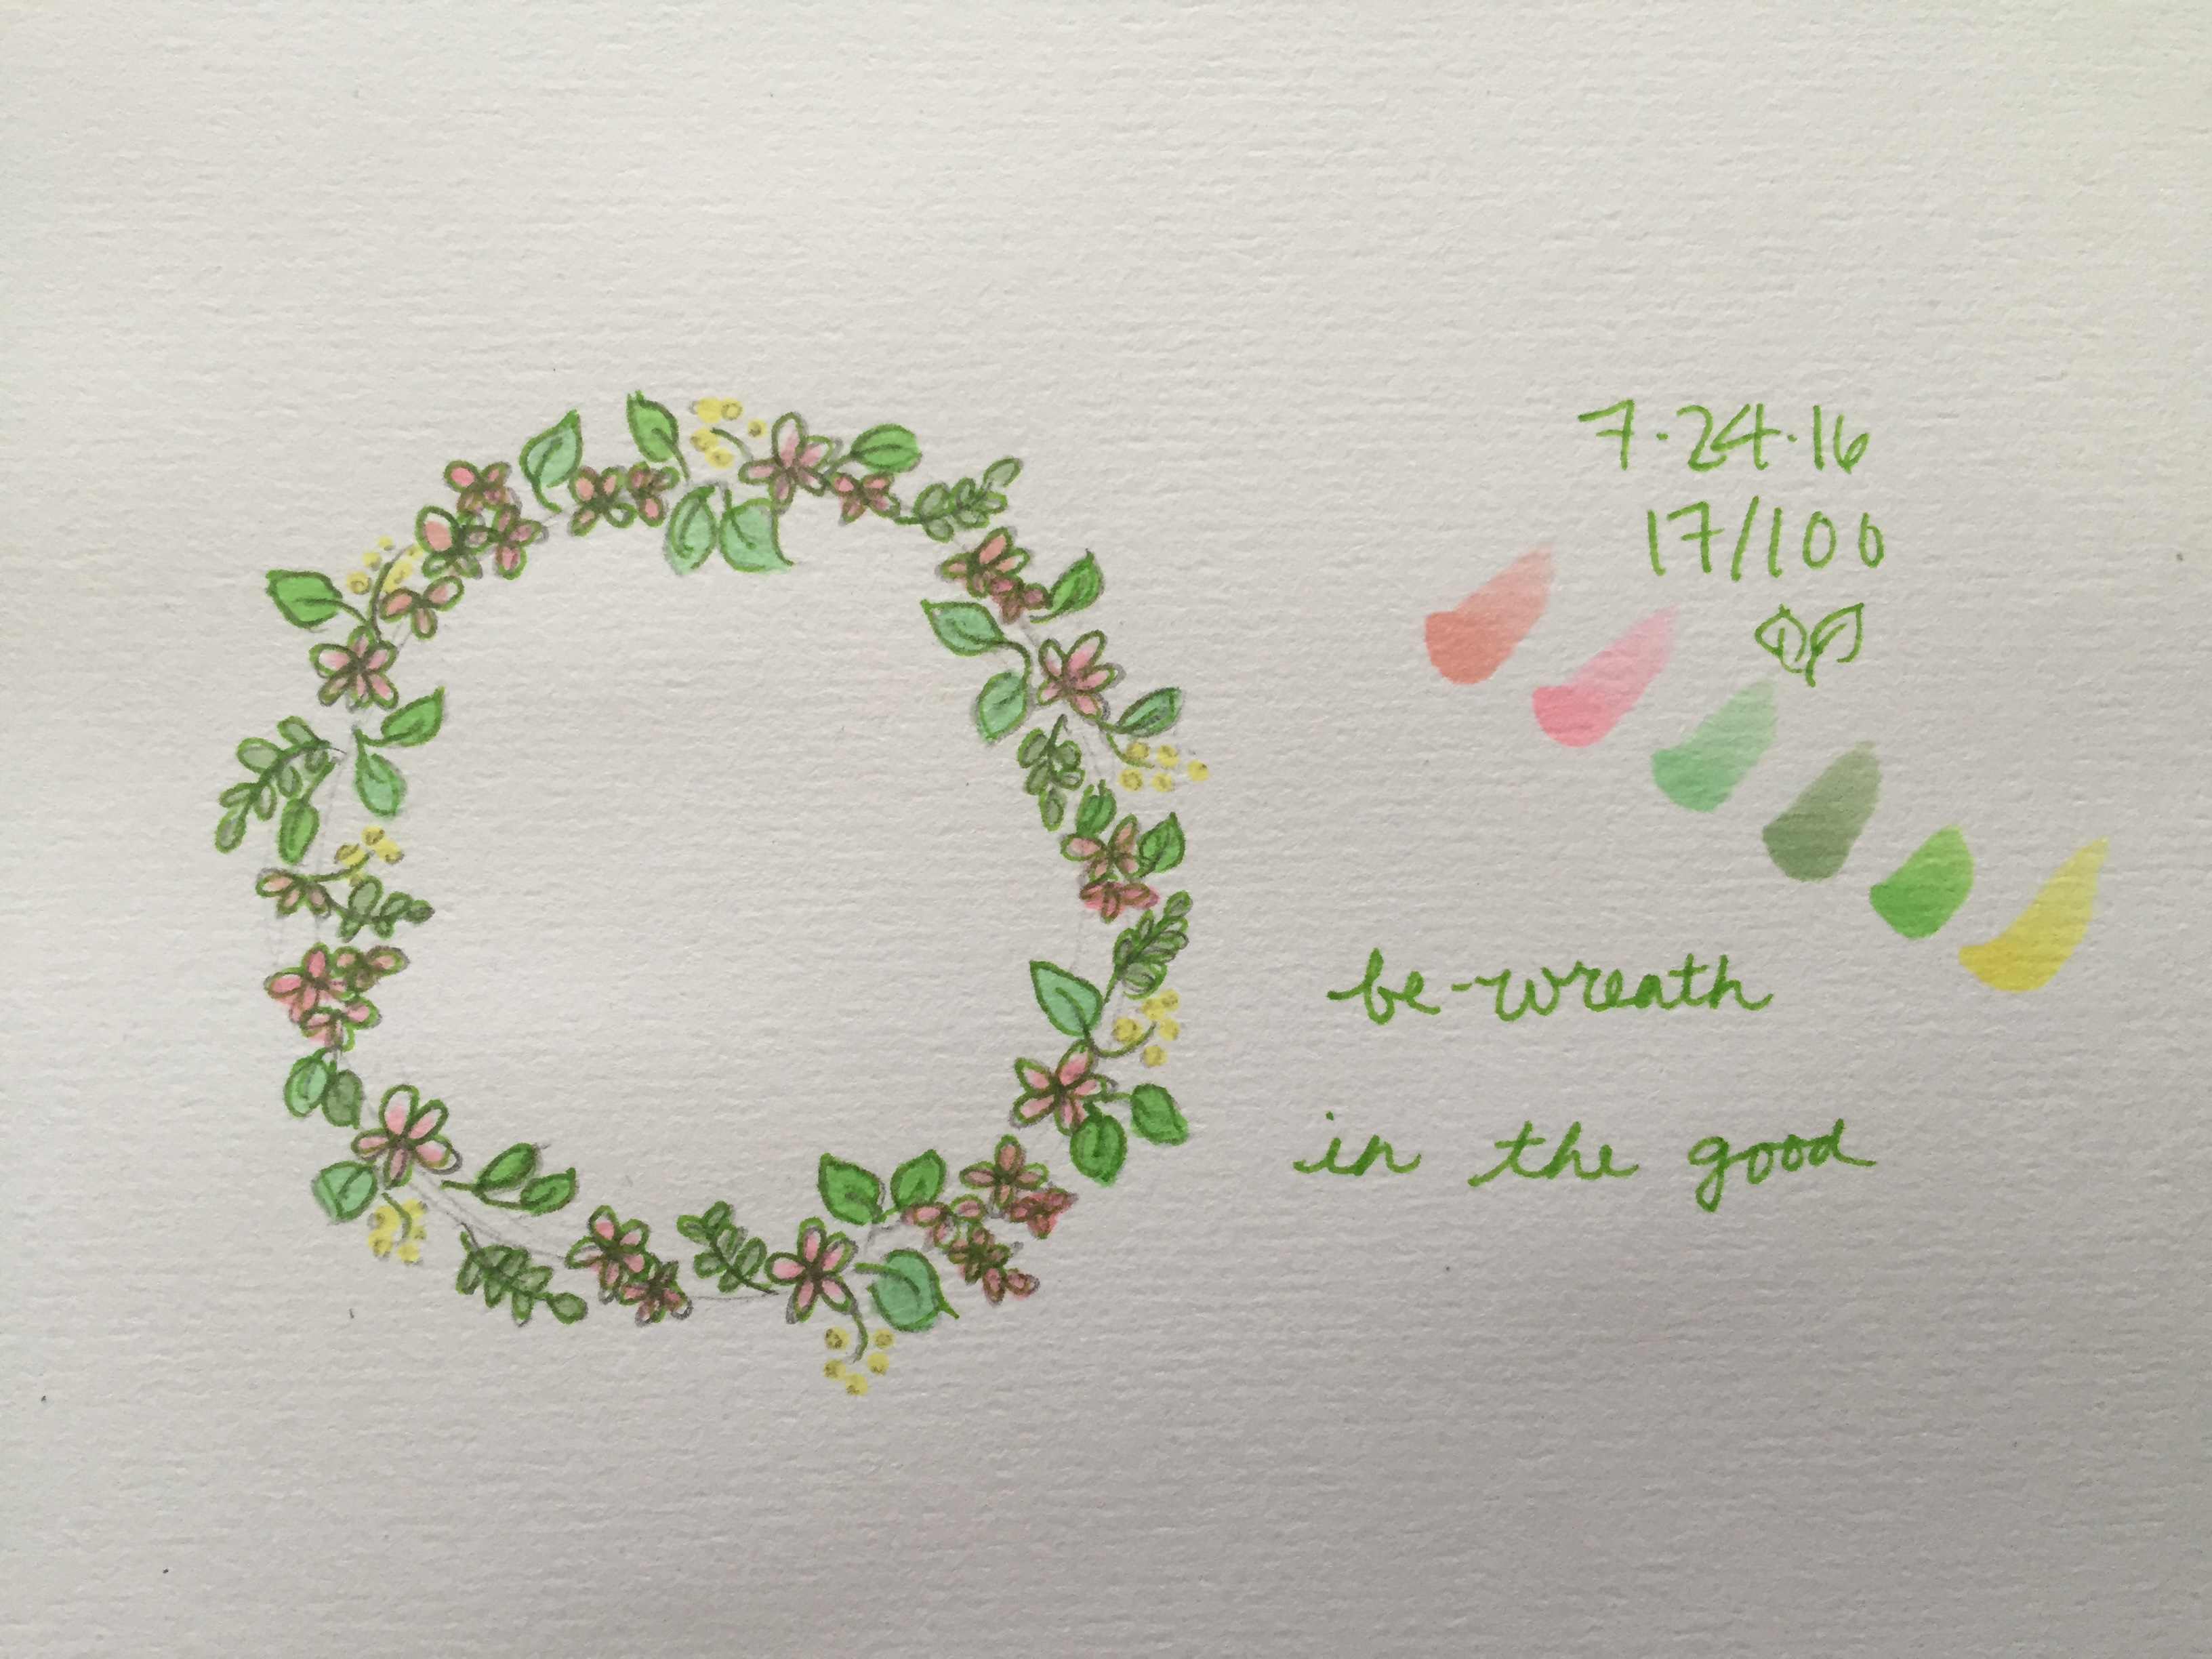 7·24·16
17/106
be-wreath
in the good